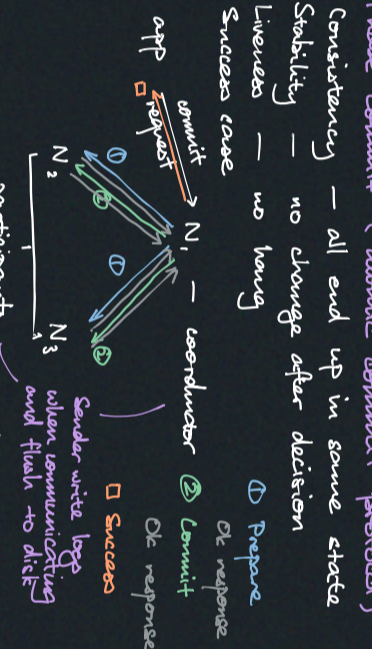 Commit (atomic commit protocol)
Consistency — all end up in same state
Stability — no change after decision
Liveness — no hang
Success case
app
commit
request
N₁ — coordinator
①
②
①
②
N₂
N₃
participants
① Prepare
Ok response
② Commit
Ok response
□ Success
Sender write logs
when communicating
and flush to disk